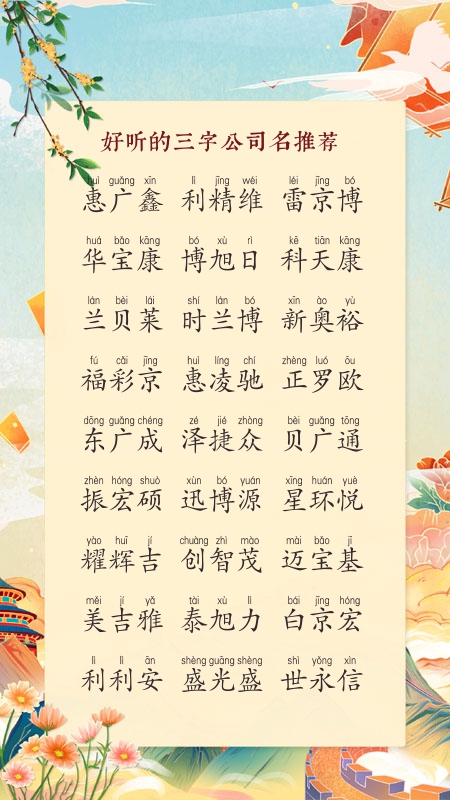 好听的三字公司名推荐
huì guǎng xīn lì jīng wéi léi jīng bó
惠广鑫 利精维 雷京博
huá bǎo kāng bó xù rì kē tiān kāng
华宝康 博旭日 科天康
lán bèi lái shí lán bó xīn ào yù
兰贝莱 时兰博 新奥裕
fú cǎi jīng huì líng chí zhèng luó ōu
福彩京 惠凌驰 正罗欧
dōng guǎng chéng zé jié zhòng bèi guǎng tōng
东广成 泽捷众 贝广通
zhèn hóng shuò xùn bó yuán xīng huán yuè
振宏硕 迅博源 星环悦
yào huī jí chuàng zhì mào mài bǎo jī
耀辉吉 创智茂 迈宝基
měi jí yǎ tài xù lì bái jīng hóng
美吉雅 泰旭力 白京宏
lì lì ān shèng guāng shèng shì yǒng xìn
利利安 盛光盛 世永信